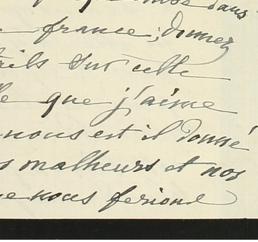 dans
france; donnez
ails sur cette
le que j'aime
nous est il donné
s malheurs et nos
e nous ferions